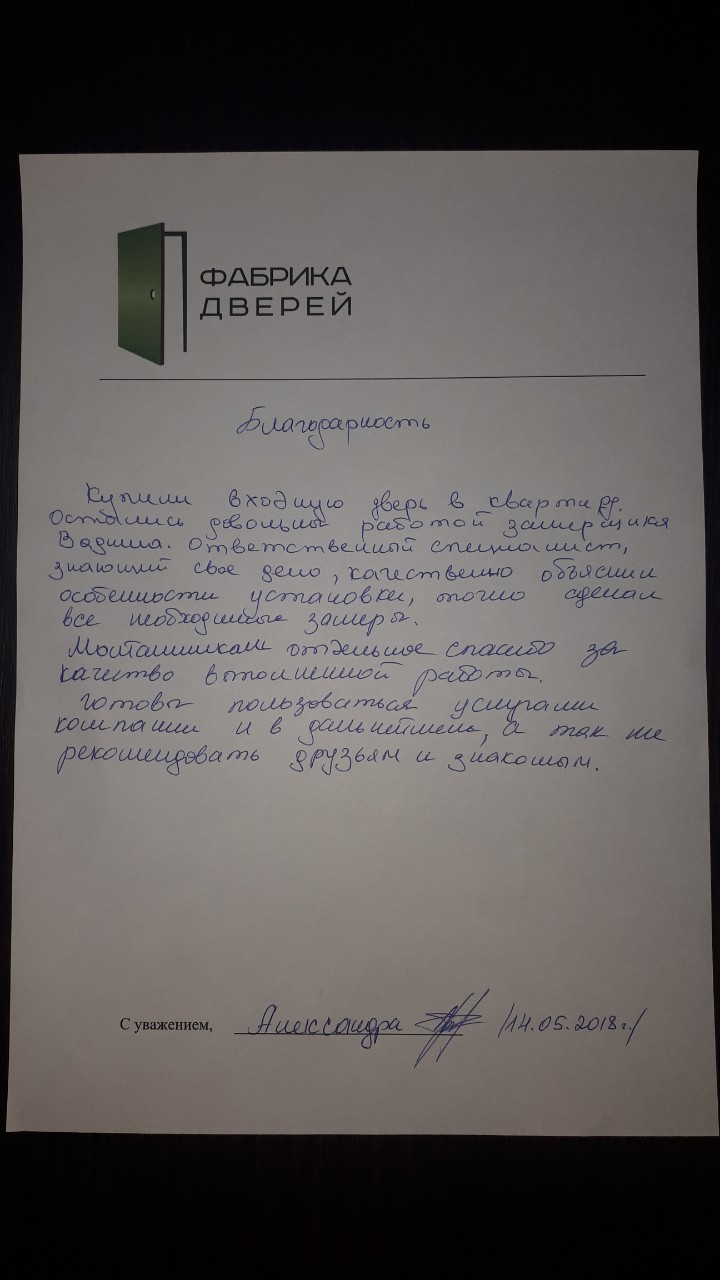 ФАБРИКА
ДВЕРЕЙ
Благодарность
Купили входную дверь в квартиру.
Остались довольны работой замерщика
Вадима. Ответственный специалист,
знающий свое дело, качественно объяснил
особенности установки, точно сделал
все необходимые замеры.
Монтажникам отдельное спасибо за
качество выполненной работы.
Готовы пользоваться услугами
компании и в дальнейшем, а так же
рекомендовать друзьям и знакомым.
С уважением, Александра /14.05.2018г./